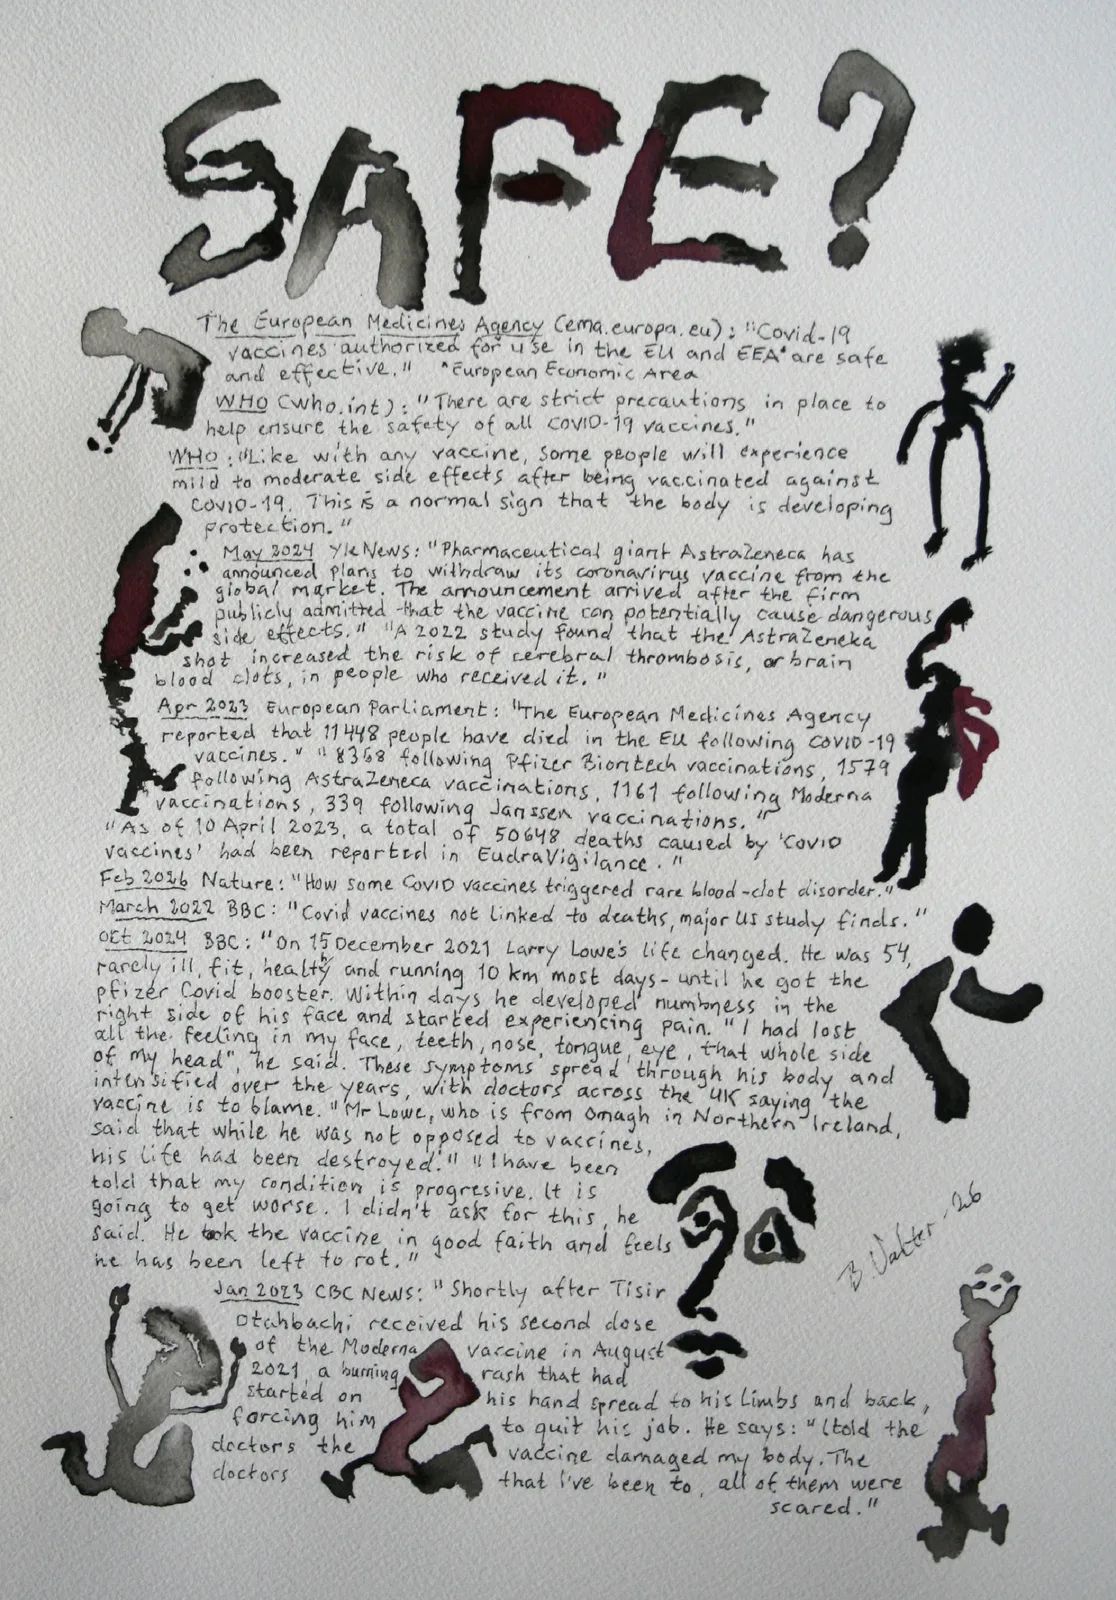 SAFE?
The European Medicines Agency (ema.europa.eu): "Covid-19
vaccines authorized for use in the EU and EEA* are safe
and effective." *European Economic Area
WHO (who.int): "There are strict precautions in place to
help ensure the safety of all COVID-19 vaccines."
WHO: "Like with any vaccine, some people will experience
mild to moderate side effects after being vaccinated against
COVID-19. This is a normal sign that the body is developing
protection."
May 2024 Yle News: "Pharmaceutical giant AstraZeneca has
announced plans to withdraw its coronavirus vaccine from the
global market. The announcement arrived after the firm
publicly admitted that the vaccine can potentially cause dangerous
side effects." "A 2022 study found that the AstraZeneka
shot increased the risk of cerebral thrombosis, or brain
blood clots, in people who received it."
Apr 2023 European Parliament: "The European Medicines Agency
reported that 11448 people have died in the EU following COVID-19
vaccines." "8368 following Pfizer Biontech vaccinations, 1579
following AstraZeneca vaccinations, 1161 following Moderna
vaccinations, 339 following Janssen vaccinations."
"As of 10 April 2023, a total of 50648 deaths caused by 'COVID
vaccines' had been reported in EudraVigilance."
Feb 2026 Nature: "How some COVID vaccines triggered rare blood-clot disorder."
March 2022 BBC: "Covid vaccines not linked to deaths, major US study finds."
Oct 2024 BBC: "On 15 December 2021 Larry Lowe's life changed. He was 54,
rarely ill, fit, healthy and running 10 km most days - until he got the
pfizer Covid booster. Within days he developed numbness in the
right side of his face and started experiencing pain. "I had lost
all the feeling in my face, teeth, nose, tongue, eye, that whole side
of my head", he said. These symptoms spread through his body and
intensified over the years, with doctors across the UK saying the
vaccine is to blame. "Mr Lowe, who is from Omagh in Northern Ireland,
said that while he was not opposed to vaccines,
his life had been destroyed." "I have been
told that my condition is progresive. It is
going to get worse. I didn't ask for this, he
said. He took the vaccine in good faith and feels
he has been left to rot."
B. Valter -26
Jan 2023 CBC News: "Shortly after Tisir
Otahbachi received his second dose
of the Moderna vaccine in August
2021, a burning rash that had
started on his hand spread to his limbs and back,
forcing him to quit his job. He says: "I told the
doctors the vaccine damaged my body. The
doctors that I've been to, all of them were
scared."